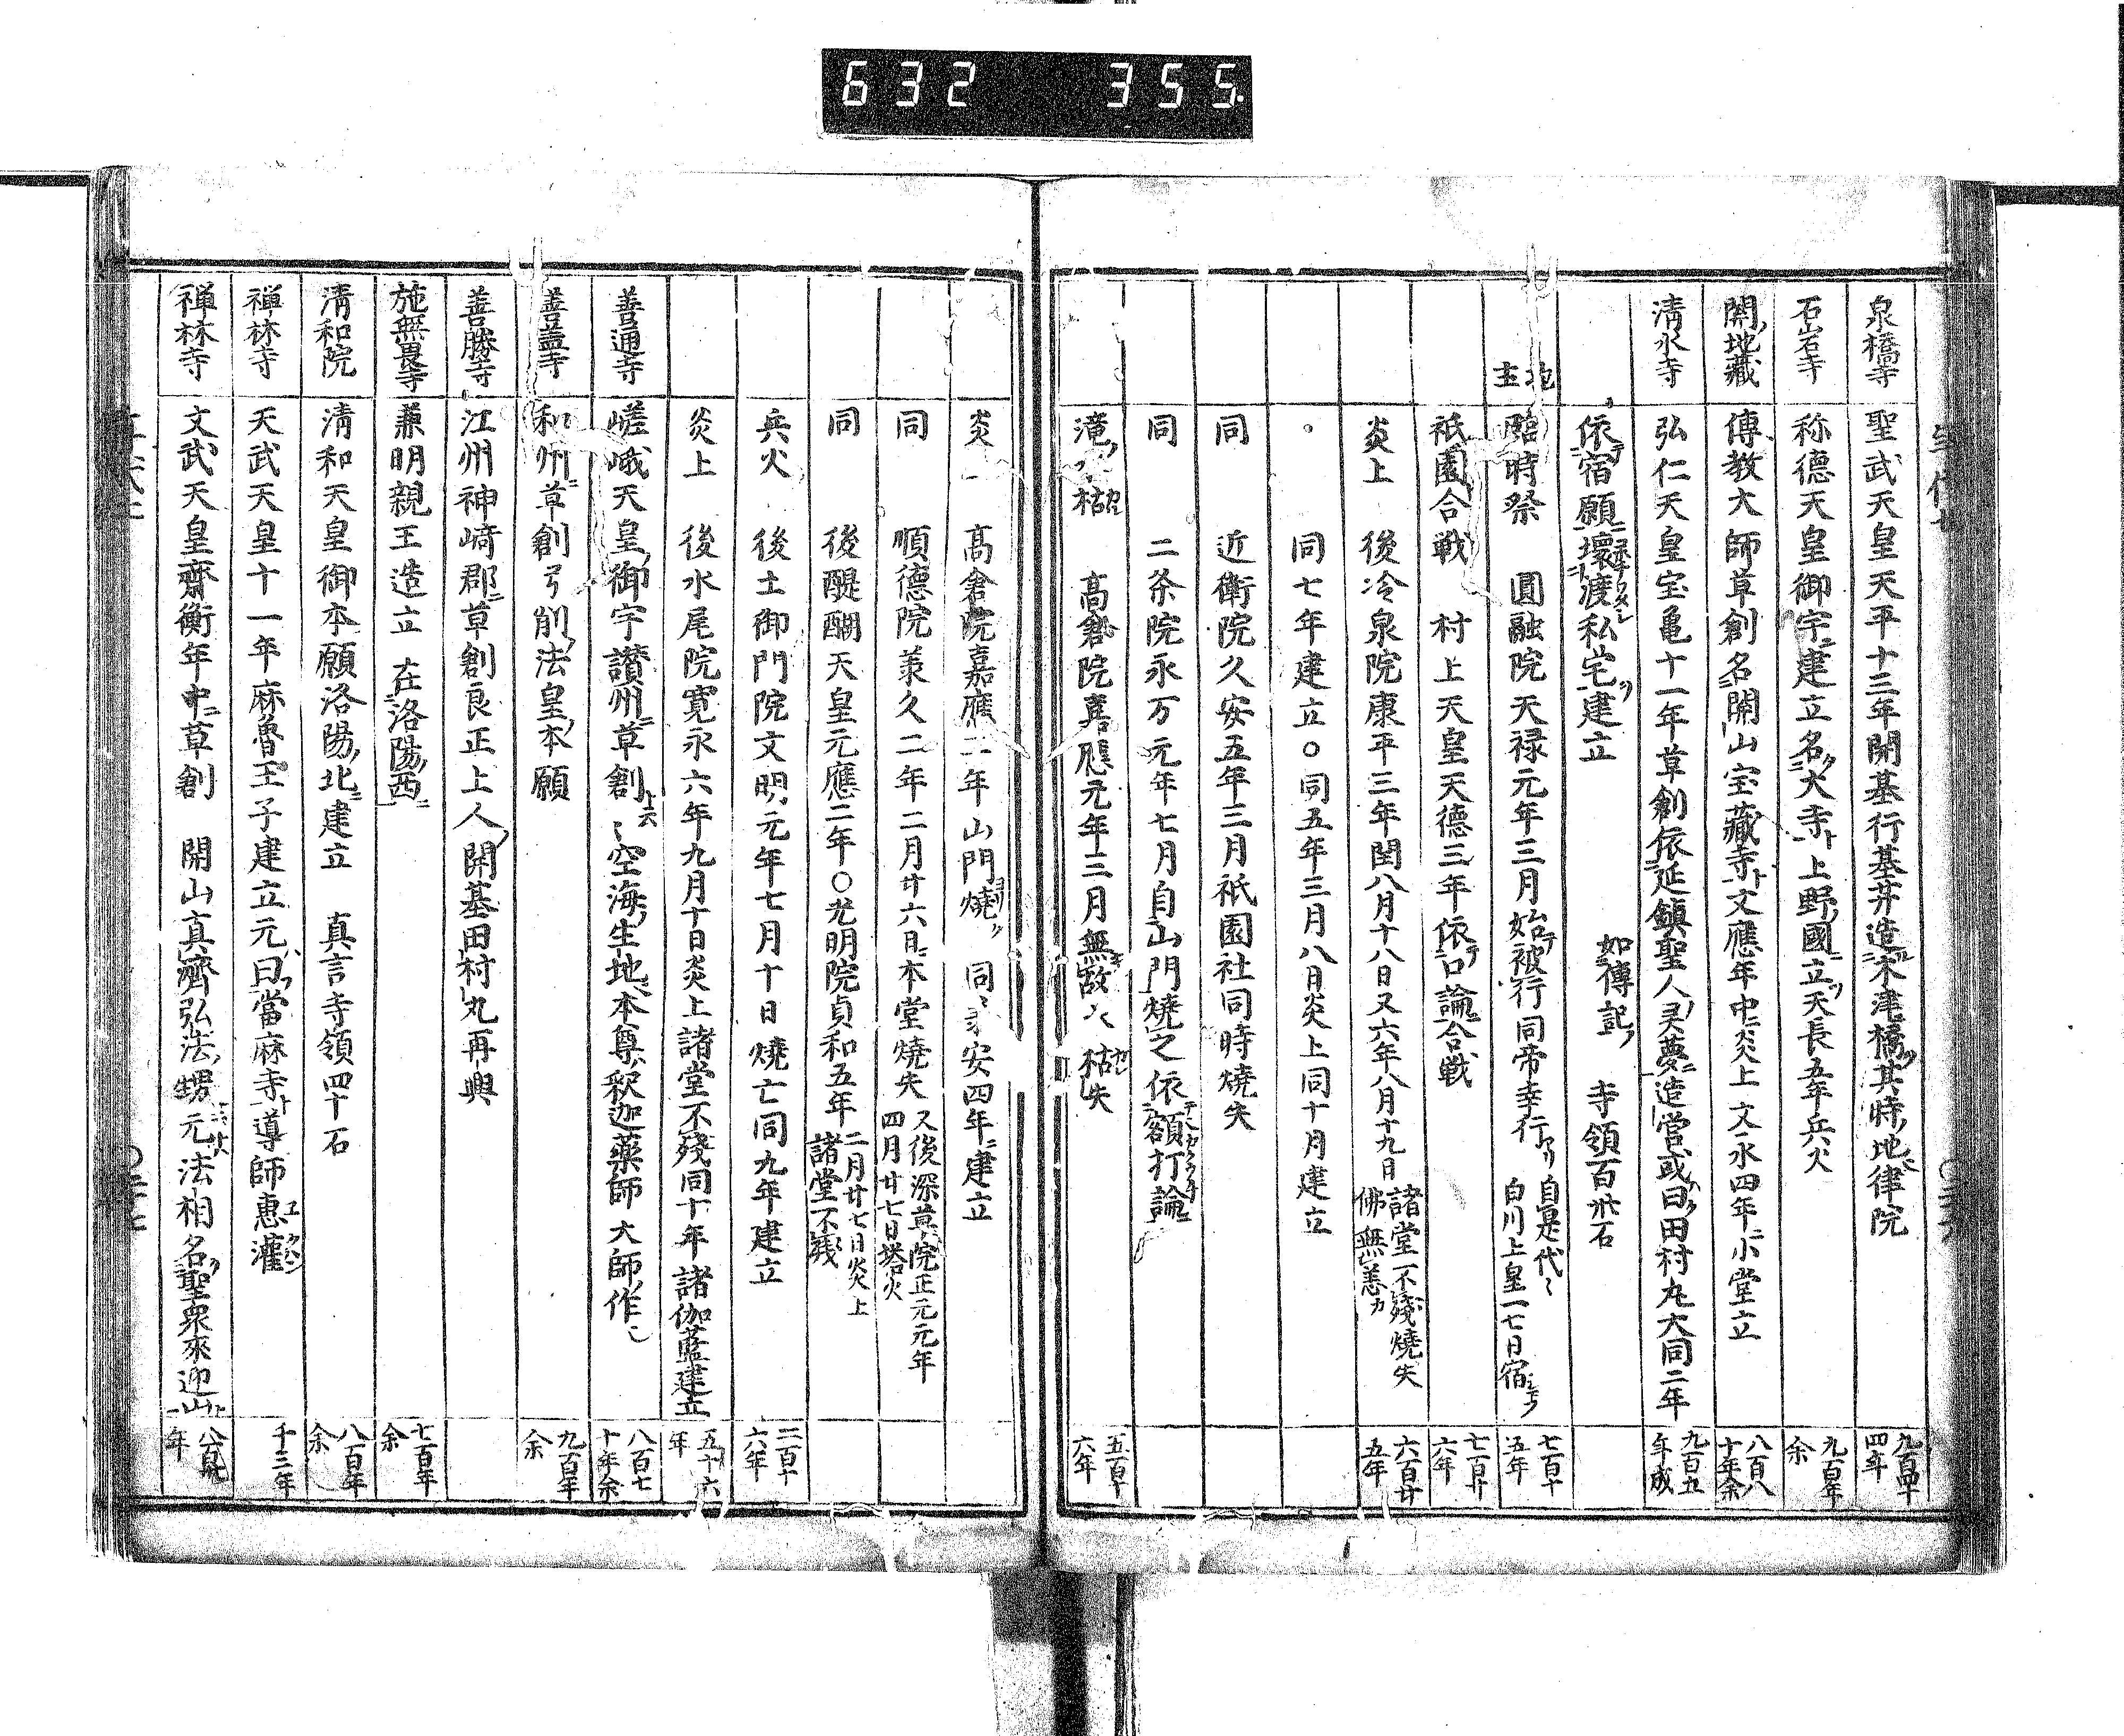 632 355
泉橋寺 聖武天皇天平十三年開基行基井造木津橋其時地律院 九百四十四年
石岩寺 称德天皇御宇建立名大寺上野國立天長五年兵火 九百年余
関地藏 傳教大師草創名関山宝藏寺文應年中炎上文永四年小堂立 八百八十年余
清水寺 弘仁天皇宝亀十一年草創依延鎮聖人灵夢造営或曰田村丸大同二年 九百五年成
依宿願壞渡私宅建立 如傳記 寺領百卅石
地主 臨時祭 圓融院天禄元年三月始被行同帝幸行 自是代〻 白川上皇一七日宿 七百十五年
祇園合戦 村上天皇天德三年依口論合戦 七百廿六年
炎上 後冷泉院康平三年閏八月十八日又六年八月十九日 諸堂不殘燒失 佛無恙 六百廿五年
同七年建立○同五年三月八日炎上同十月建立
同 近衛院久安五年三月祇園社同時燒失
同 二条院永万元年七月自山門燒之依額打論
滝枯 高倉院嘉應元年三月無故枯失 五百十六年
炎 高倉院嘉應二年山門燒 同 安四年建立
同 順德院承久二年二月廿六日本堂燒失 又後深草院正元元年 四月廿七日塔火
同 後醍醐天皇元應二年○光明院貞和五年 二月廿七日炎上 諸堂不殘
兵火 後土御門院文明元年七月十日燒亡同九年建立 二百十六年
炎上 後水尾院寛永六年九月十日炎上諸堂不殘同十年諸伽藍建立 五十六年
善通寺 嵯峨天皇御宇讃州草創 空海生地本尊釈迦薬師大師作 八百七十年余
善蓋寺 和州草創弓削法皇本願 九百年余
善勝寺 江州神﨑郡草創良正上人開基田村丸再興
施無畏寺 兼明親王造立 在洛陽西 七百年余
清和院 清和天皇御本願洛陽北建立 真言寺領四十石 八百年余
禅林寺 天武天皇十一年麻魯王子建立元曰當麻寺導師惠灌 千三年
禅林寺 文武天皇齋衡年中草創 開山真濟弘法甥元法相名聖衆來迎山